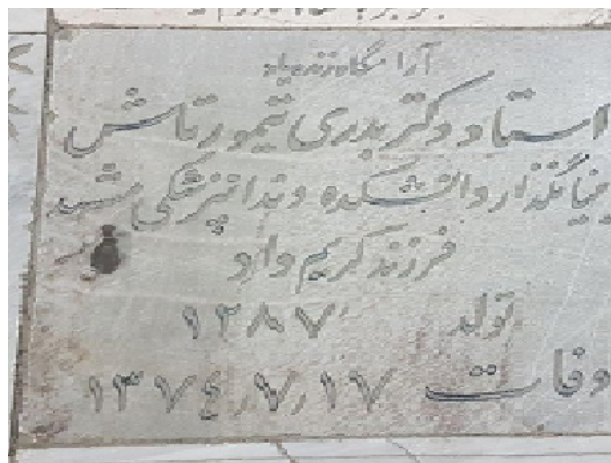 آرامگاه زنده یاد
استاد دکتر بدری تیمورتاش
بنیانگذار دانشکده دندانپزشکی مشهد
فرزند کریم داد
تولد ۱۲۸۷
وفات ۱۳۷٤٫۷٫۱۷